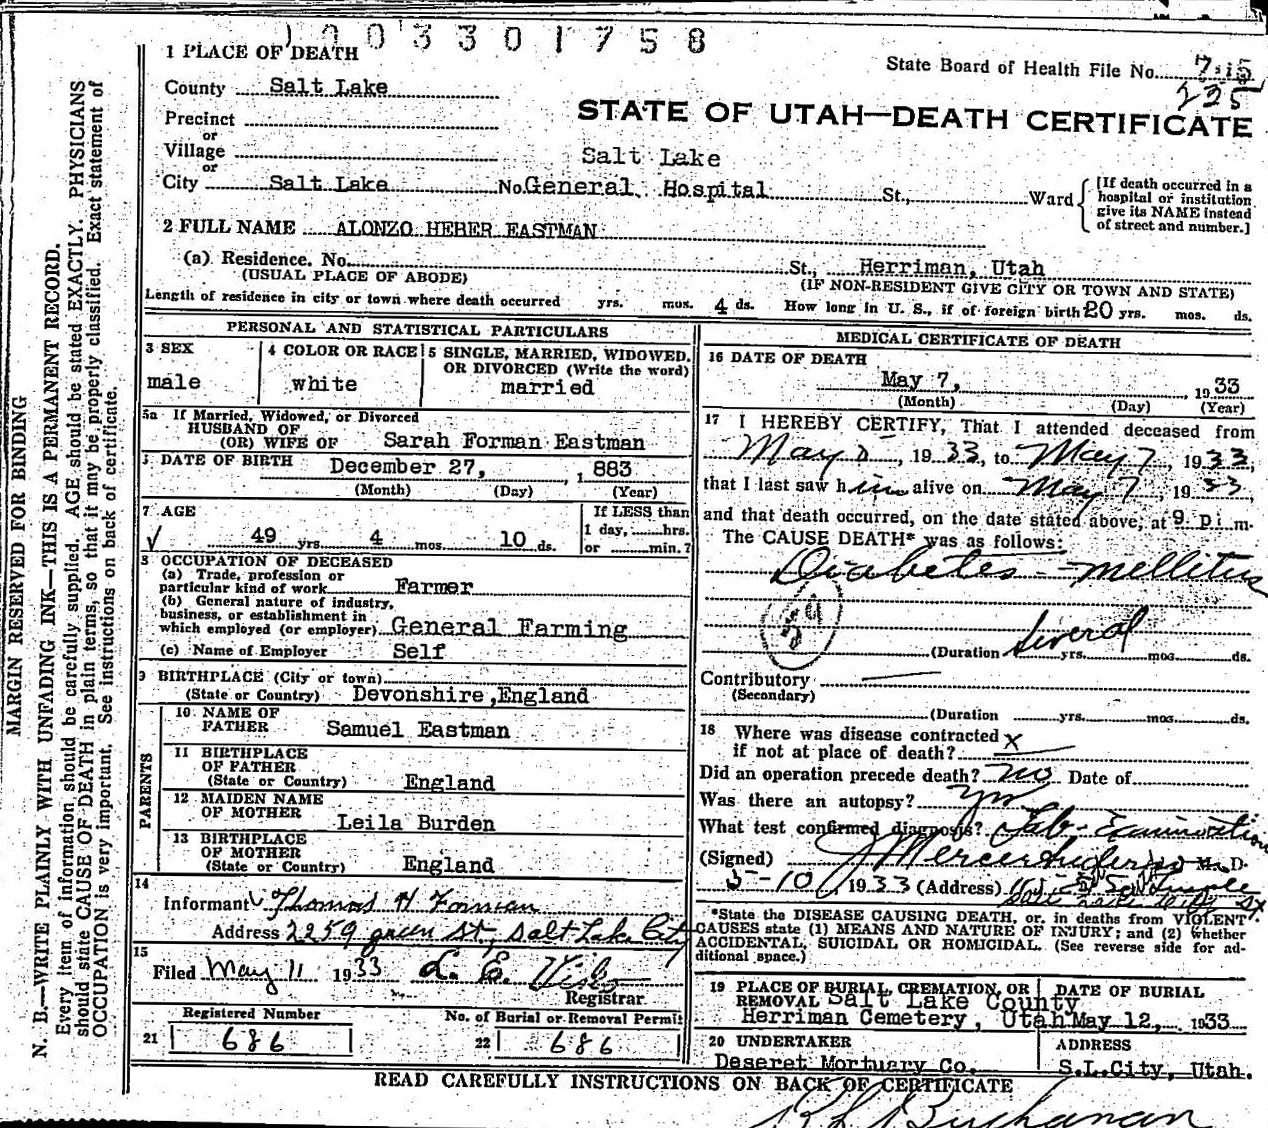 1003301758
1 PLACE OF DEATH
State Board of Health File No.
225
County Salt Lake
STATE OF UTAH—DEATH CERTIFICATE
Precinct
or
Village
or
Salt Lake
City Salt Lake No. General Hospital St., Ward
[If death occurred in a
hospital or institution
give its NAME instead
of street and number.]
2 FULL NAME ALONZO HEBER EASTMAN
(a) Residence. No. St., Herriman, Utah
(USUAL PLACE OF ABODE) (IF NON-RESIDENT GIVE CITY OR TOWN AND STATE)
Length of residence in city or town where death occurred yrs. mos. 4 ds. How long in U. S., if of foreign birth 20 yrs. mos. ds.
PERSONAL AND STATISTICAL PARTICULARS
3 SEX
male
4 COLOR OR RACE
white
5 SINGLE, MARRIED, WIDOWED,
OR DIVORCED (Write the word)
married
5a If Married, Widowed, or Divorced
HUSBAND OF
(OR) WIFE OF Sarah Forman Eastman
DATE OF BIRTH December 27, 1883
(Month) (Day) (Year)
7 AGE
49 yrs. 4 mos. 10 ds.
If LESS than
1 day, hrs.
or min.?
8 OCCUPATION OF DECEASED
(a) Trade, profession or
particular kind of work Farmer
(b) General nature of industry,
business, or establishment in
which employed (or employer) General Farming
(c) Name of Employer Self
9 BIRTHPLACE (City or town)
(State or Country) Devonshire, England
PARENTS
10 NAME OF
FATHER Samuel Eastman
11 BIRTHPLACE
OF FATHER
(State or Country) England
12 MAIDEN NAME
OF MOTHER
Leila Burden
13 BIRTHPLACE
OF MOTHER
(State or Country) England
14
Informant Thomas H Forman
Address 2259 green St, Salt Lake City
15
Filed May 11 1933 L. E.
Registrar
Registered Number
21 686
No. of Burial or Removal Permit
22 686
MEDICAL CERTIFICATE OF DEATH
16 DATE OF DEATH
May 7, 1933
(Month) (Day) (Year)
17 I HEREBY CERTIFY, That I attended deceased from
May , 1933, to May 7, 1933,
that I last saw him alive on May 7, 1933,
and that death occurred, on the date stated above, at 9 P. m.
The CAUSE DEATH* was as follows:
Diabetes - mellitus
59
(Duration several yrs. mos. ds.
Contributory
(Secondary)
(Duration yrs. mos. ds.
18 Where was disease contracted
if not at place of death? X
Did an operation precede death? no Date of
Was there an autopsy? yes
What test confirmed diagnosis? Lab - Examination
(Signed) M. D.
5-10, 1933 (Address)
*State the DISEASE CAUSING DEATH, or, in deaths from VIOLENT
CAUSES state (1) MEANS AND NATURE OF INJURY; and (2) whether
ACCIDENTAL, SUICIDAL OR HOMICIDAL. (See reverse side for ad-
ditional space.)
19 PLACE OF BURIAL, CREMATION, OR
REMOVAL Salt Lake County
Herriman Cemetery, Utah
DATE OF BURIAL
May 12, 1933
20 UNDERTAKER
Deseret Mortuary Co.
ADDRESS
S.L.City, Utah.
READ CAREFULLY INSTRUCTIONS ON BACK OF CERTIFICATE
Buchanan
MARGIN RESERVED FOR BINDING
N. B.—WRITE PLAINLY WITH UNFADING INK—THIS IS A PERMANENT RECORD.
Every item of information should be carefully supplied. AGE should be stated EXACTLY. PHYSICIANS
should state CAUSE OF DEATH in plain terms, so that it may be properly classified. Exact statement of
OCCUPATION is very important. See instructions on back of certificate.